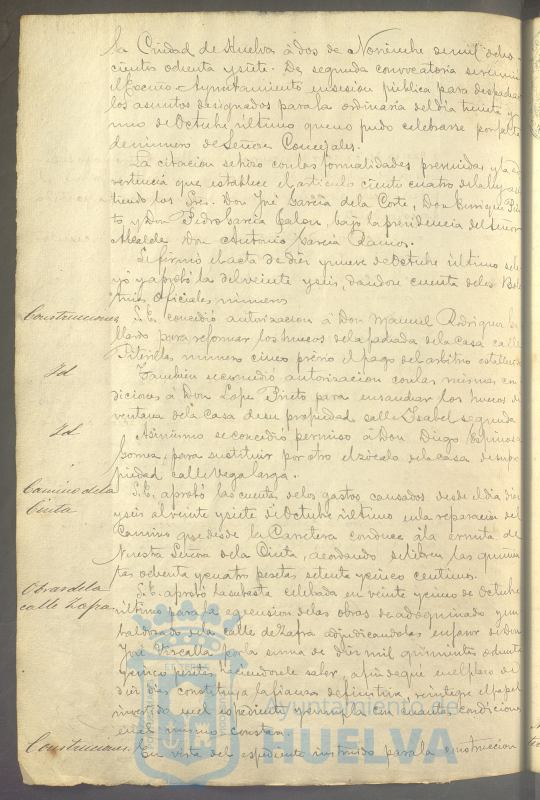 la Ciudad de Huelva á dos de Noviembre de mil ocho-
cientos ochenta y siete. De segunda convocatoria se reunió
el Excmo. Ayuntamiento en sesion pública para despachar
los asuntos designados para la ordinaria del dia treinta y
uno de Octubre último que no pudo celebrarse por falta
de número de Señores Concejales.
La citacion se hizo con las formalidades prevenidas y la ad
vertencia que establece el artículo ciento cuatro de la ley, asis
tiendo los Sres. Don José Garcia de la Corte, Don Enrique
y Don Pedro Garcia bajo la presidencia del Señor
Alcalde Don Antonio Garcia Ramos.
Se firmó el acta de diez y nueve de Octubre último se le
yó y aprobó la del veinte y seis, dandose cuenta de los Bole
tines Oficiales números
Construcciones
S.E. concedió autorizacion á Don Manuel Rodriguez
para reformar los huecos de la fachada de la casa calle
número cinco previo el pago del arbitrio establecido
Id
Tambien se concedió autorizacion con las mismas con
diciones á Don Lope Prieto para ensanchar los huecos de
ventana de la casa de su propiedad calle Isabel segunda
Id
Asimismo se concedió permiso á Don Diego Espinosa
Gomez, para sustituir por otro el zócalo de la casa de su pro
piedad calle Vega larga.
Camino de la
Cinta
S.E. aprobó las cuentas de los gastos causados desde el dia diez
y seis al veinte y siete de Octubre último en la reparacion del
Camino que desde la Carretera conduce á la ermita de
Nuestra Señora de la Cinta, acordando se libren las quinien
tas ochenta y cuatro pesetas setenta y cinco centimos.
Obras de la
calle Zafra
S.E. aprobó la subasta celebrada en veinte y cinco de Octubre
último para la egecucion de las obras de adoquinado y em
baldosado de la calle de Zafra adjudicandolas en favor de Don
José Viscalla por la suma de dos mil quinientas ochenta
y cinco pesetas haciendosele saber, á fin de que en el plazo de
diez dias constituya la fianza definitiva, reintegre el papel
invertido en el espediente y cumpla con cuantas condiciones
en el mismo constan.
Construcciones
En vista del espediente instruido para la construccion
Ayuntamiento de
HUELVA